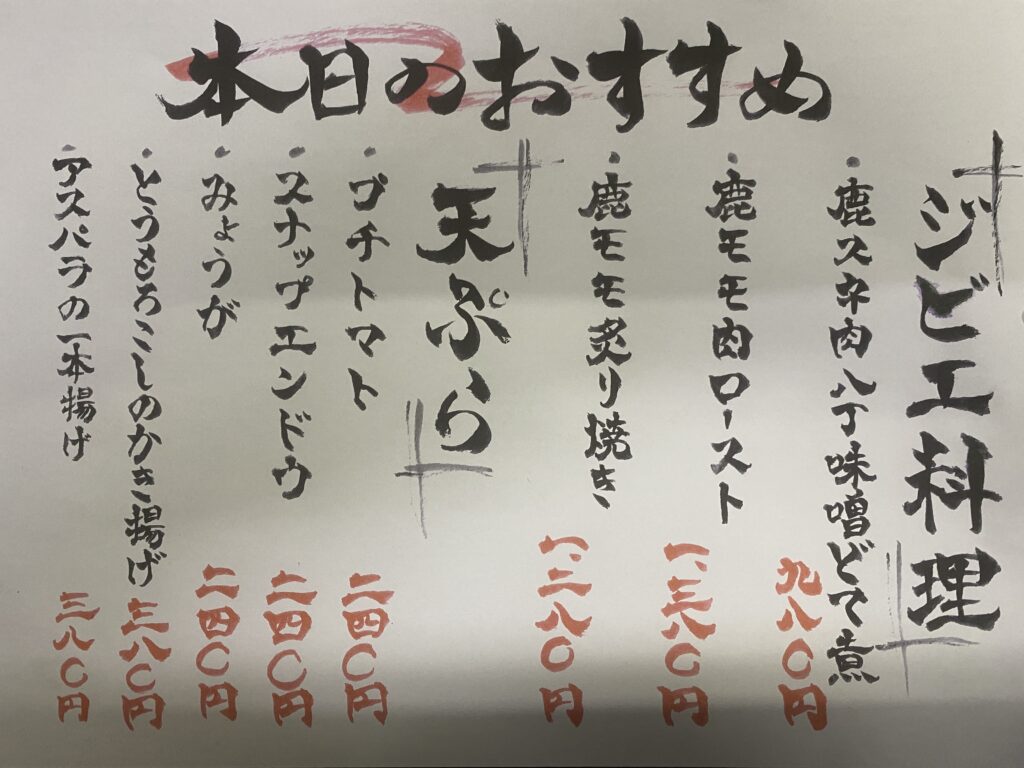 本日のおすすめ
ジビエ料理
・鹿スネ肉八丁味噌どて煮 九八〇円
・鹿モモ肉ロースト 一、三八〇円
・鹿モモ炙り焼き 一、二八〇円
天ぷら
・プチトマト 二四〇円
・スナップエンドウ 二四〇円
・みょうが 二四〇円
・とうもろこしのかき揚げ 三八〇円
・アスパラの一本揚げ 三八〇円